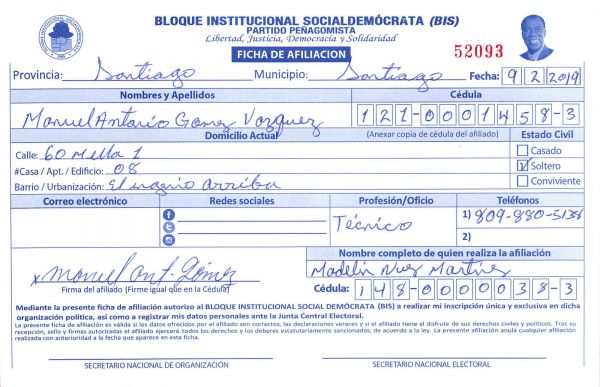 BLOQUE INSTITUCIONAL SOCIALDEMÓCRATA (BIS)
PARTIDO PEÑAGOMISTA
Libertad, Justicia, Democracia y Solidaridad
FICHA DE AFILIACION
52093
Provincia: Santiago Municipio: Santiago Fecha: 9 2 2019
Nombres y Apellidos Cédula
Manuel Antonio Gomez Vazquez 121-0001458-3
Domicilio Actual (Anexar copia de cédula del afiliado) Estado Civil
Calle: 60 Mella 1 Casado
#Casa / Apt. / Edificio: 08 Soltero
Barrio / Urbanización: El ingenio arriba Conviviente
Correo electrónico Redes sociales Profesión/Oficio Teléfonos
Técnico 1) 809-880-5138
2)
Nombre completo de quien realiza la afiliación
x Manuel Ant. Gómez Madelin Nuez Martinez
Firma del afiliado (Firme igual que en la Cédula) Cédula: 148-0000038-3
Mediante la presente ficha de afiliación autorizo al BLOQUE INSTITUCIONAL SOCIAL DEMÓCRATA (BIS) a realizar mi inscripción única y exclusiva en dicha
organización política, así como a registrar mis datos personales ante la Junta Central Electoral.
La presente ficha de afiliación es válida si los datos ofrecidos por el afiliado son correctos, las declaraciones veraces y si el afiliado tiene el disfrute de sus derechos civiles y políticos. Tras su
recepción, sello y firmas autorizadas el afiliado ejercerá todos los derechos y los deberes estatutariamente sancionados, de acuerdo a la ley. La presente afiliación anula cualquier afiliación
realizada con anterioridad a la fecha que aparece en esta ficha.
SECRETARIO NACIONAL DE ORGANIZACIÓN SECRETARIO NACIONAL ELECTORAL